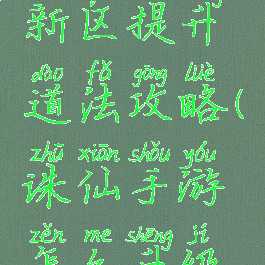 新区提升
dào fǎ gōng lüè
道法攻略(
zhū xiān shǒu yóu
诛仙手游
zěn me shēng jí
怎么升级